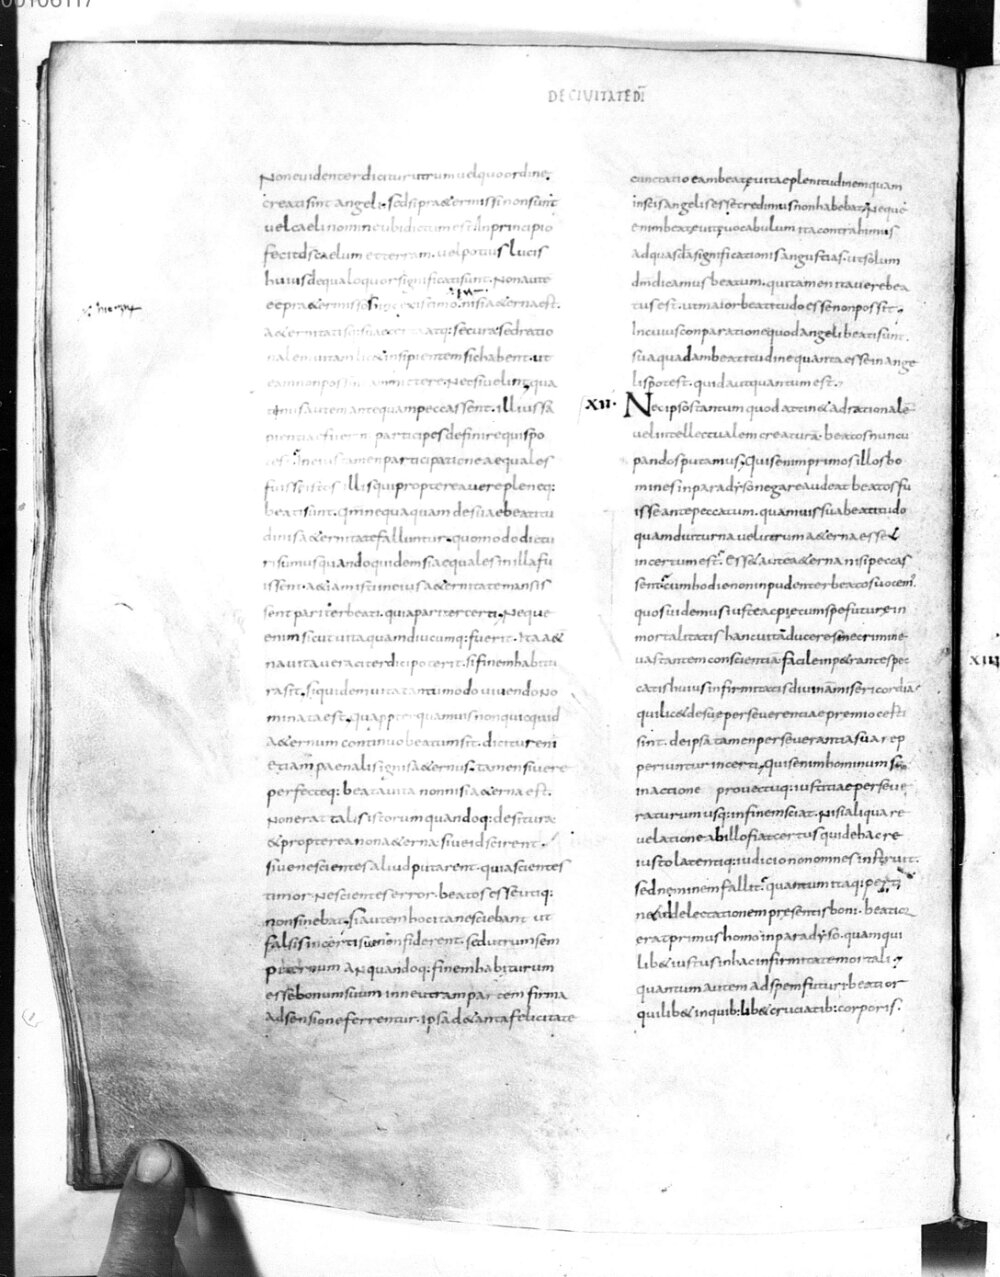 DE CIUITATE DĪ
Non euidenter dicitur utrum uel quo ordine
creati sint angeli. Sed si praetermissi non sunt
uel caeli nomine ubi dictum est In principio
fecit ds caelum et terram. uel potius lucis
huius de qua loquor significati sunt. Non aute
ee praetermissos
aeternitatis suae certa atq: secura sed ratio
nalem uitam licet insipientem sic habent. ut
eam non possint amittere. Nec si uelint qua
tinus autem ante quam peccassent. illius sa
pientiae fuerint participes definire quis po
test. In eius tamen participatione aequales
fuisse istos illis qui propterea uere pleneq:
beati sunt. qm nequaquam de suae beatitu
dinis aeternitate falluntur. quomodo dictu
ri sumus quando quidem si aequales in illa fu
issent. etiam isti in eius aeternitate mansis
sent pariter beati. quia pariter certi. Neque
enim sicut uita quamdiucumq: fuerit. Ita aet
na uita ueraciter dici poterit. si finem habitu
ra sit. Siquidem uita tantummodo uiuendo No
minata est. quappter quamuis non quicquid
aeternum continuo beatum sit. dicitur eni
etiam paenalis ignis aeternus. tamen si uere
perfecteq: beata uita non nisi aeterna est.
Non erat talis istorum quandoq: desitura
et propterea non aeterna. siue id scirent.
siue nescientes aliud putarent. quia scientes
timor. Nescientes error. beatos esse utiq:
non sinebat. Si autem hoc ita nesciebant ut
falsis incertisue non fiderent. sed utrum sem
piternum an quandoq: finem habiturum
esset bonum suum in neutram partem firma
adsensione ferrentur. ipsa de tanta felicitate
cunctatio eam beatae uitae plenitudinem quam
in scis angelis esse credimus non habebat. Neque
enim beatae uitae uocabulum ita contrahimus
ad quasda significationis angustias. ut solum
dm dicamus beatum. qui tamen ita uere bea
tus est. ut maior beatitudo esse non possit.
In cuius conparatione quod angeli beati sunt.
sua quadam beatitudine quanta esse in ange
lis potest. quid aut quantum est.
XII. Nec ipsos tantum quod attinet ad rationale
uel intellectualem creatura. beatos nuncu
pandos putamus. Quis enim primos illos ho
mines in paradyso negare audeat beatos fu
isse ante peccatum. quamuis sua beatitudo
quam diuturna uel utrum aeterna esset
incertum est. Esset autem aeterna nisi peccas
sent. cum hodie non inpudenter beatos uocem
quos uidemus iuste ac pie cum spe futurae in
mortalitatis hanc uita ducere sine crimine
uastante conscientia. facile impetrantes pec
catis huius infirmitatis diuinam misericordia
qui licet de suae perseuerentiae premio certi
sint. de ipsa tamen perseuerantia sua rep
periuntur incerti. Quis enim hominum se
in actione prouectuq: iustitiae perseue
raturum usq: in finem sciat. Nisi aliqua re
uelatione ab illo fiat certus qui de hac re
iusto latentiq: iudicio non omnes instruit.
sed neminem fallit. quantum itaq: perti
net ad delectationem presentis boni. beatior
erat primus homo in paradyso. quam qui
libet iustus in hac infirmitate mortali.
quantum autem ad spem futuri beatior
quilibet in quib:libet cruciatib: corporis.